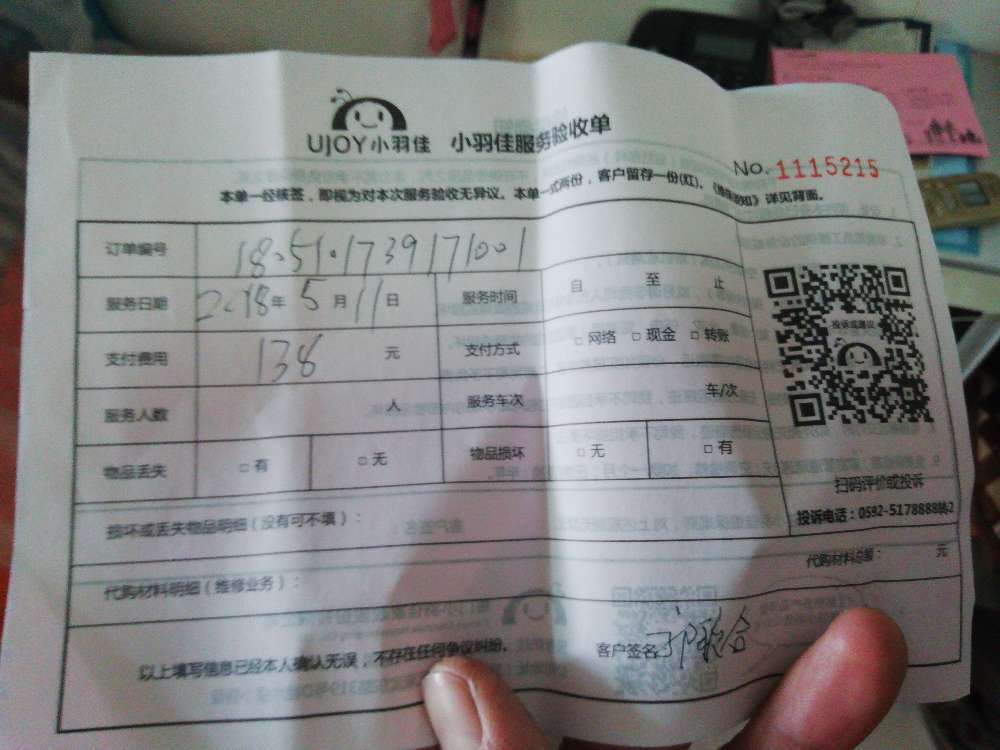 UJOY小羽佳 小羽佳服务验收单
No. 1115215
本单一经核签，即视为对本次服务验收无异议。本单一式两份，客户留存一份(红)。详见背面。
订单编号 18051.1739171001
服务日期 2018年5月11日 服务时间 自 至 止
支付费用 138 元 支付方式 □网络 □现金 □转账
服务人数 人 服务车次 车/次
物品丢失 □有 □无 物品损坏 □无 □有
投诉或建议
扫码评价或投诉
投诉电话：0592-5178888转2
损坏或丢失物品明细（没有可不填）：
代购材料明细（维修业务）： 代购材料总额： 元
以上填写信息已经本人确认无误，不存在任何争议纠纷。 客户签名